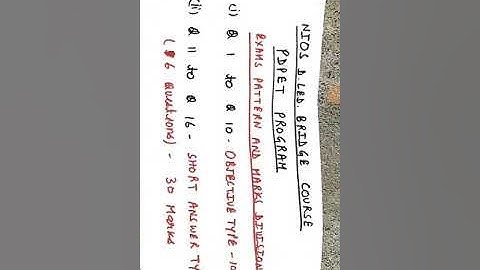 NIOS D.LED. BRIDGE COURSE
PDPET PROGRAM
EXAMS PATTERN AND MARKS DIVISION
(i) Q 1 to Q 10 - OBJECTIVE TYPE - 10
(ii) Q 11 to Q 16 - SHORT ANSWER TY
(6 Questions) - 30 Marks